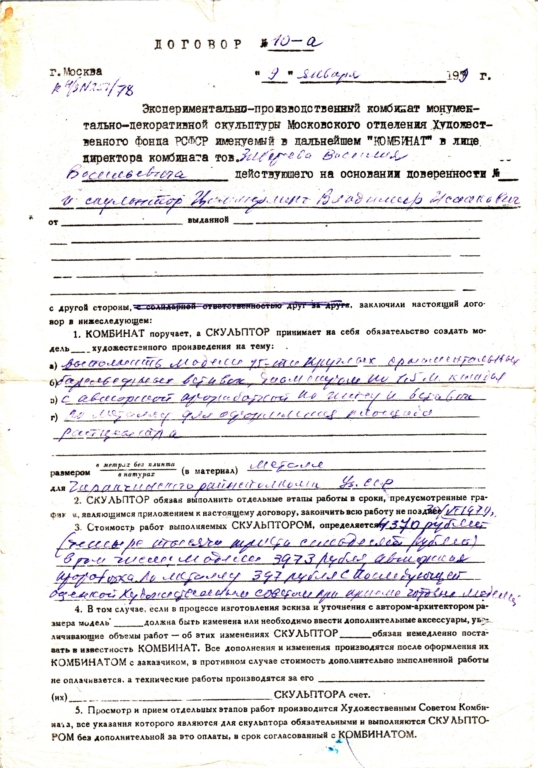 ДОГОВОР № 10-а
г. Москва "9" января 1979 г.
/78
Экспериментально-производственный комбинат монумен-
тально-декоративной скульптуры Московского отделения Художест-
венного фонда РСФСР именуемый в дальнейшем "КОМБИНАТ" в лице
директора комбината тов. Василия
Васильевича действующего на основании доверенности №
и скульптор Владимир Исаакович
от выданной
с другой стороны, с солидарной ответственностью друг за друга, заключили настоящий дого-
вор в нижеследующем:
1. КОМБИНАТ поручает, а СКУЛЬПТОР принимает на себя обязательство создать мо-
дель художественного произведения на тему:
а) выполнить модели 15-ти круглых орнаментальных
б) вставок, диаметром по 1,5 м каждая
в) с авторской проработкой по и вставок
г) по металлу для оформления площади
размером в метрах без плинта / в натурах (в материал) металл
для райисполкома Уз. ССР
2. СКУЛЬПТОР обязан выполнить отдельные этапы работы в сроки, предусмотренные гра-
фиком, являющимся приложением к настоящему договору, закончить всю работу не позднее 30/VI 1979 г.
3. Стоимость работ выполняемых СКУЛЬПТОРОМ, определяется 4370 рублей
(четыре тысячи триста семьдесят рублей)
в том числе модели 3973 рубля авторская
проработка по металлу 397 рублей с последующей
оценкой Художественным советом при приеме готовых моделей
4. В том случае, если в процессе изготовления эскиза и уточнения с автором-архитектором ра-
змера модель должна быть изменена или необходимо ввести дополнительные аксессуары, уве-
личивающие объемы работ — об этих изменениях СКУЛЬПТОР обязан немедленно поста-
вать в известность КОМБИНАТ. Все дополнения и изменения производятся после оформления их
КОМБИНАТОМ с заказчиком, в противном случае стоимость дополнительно выполненной работы
не оплачивается, а технические работы производятся за его
(их) СКУЛЬПТОРА счет.
5. Просмотр и прием отдельных этапов работ производится Художественным Советом Комби-
ната, все указания которого являются для скульптора обязательными и выполняются СКУЛЬПТО-
РОМ без дополнительной за это оплаты, в срок согласованный с КОМБИНАТОМ.